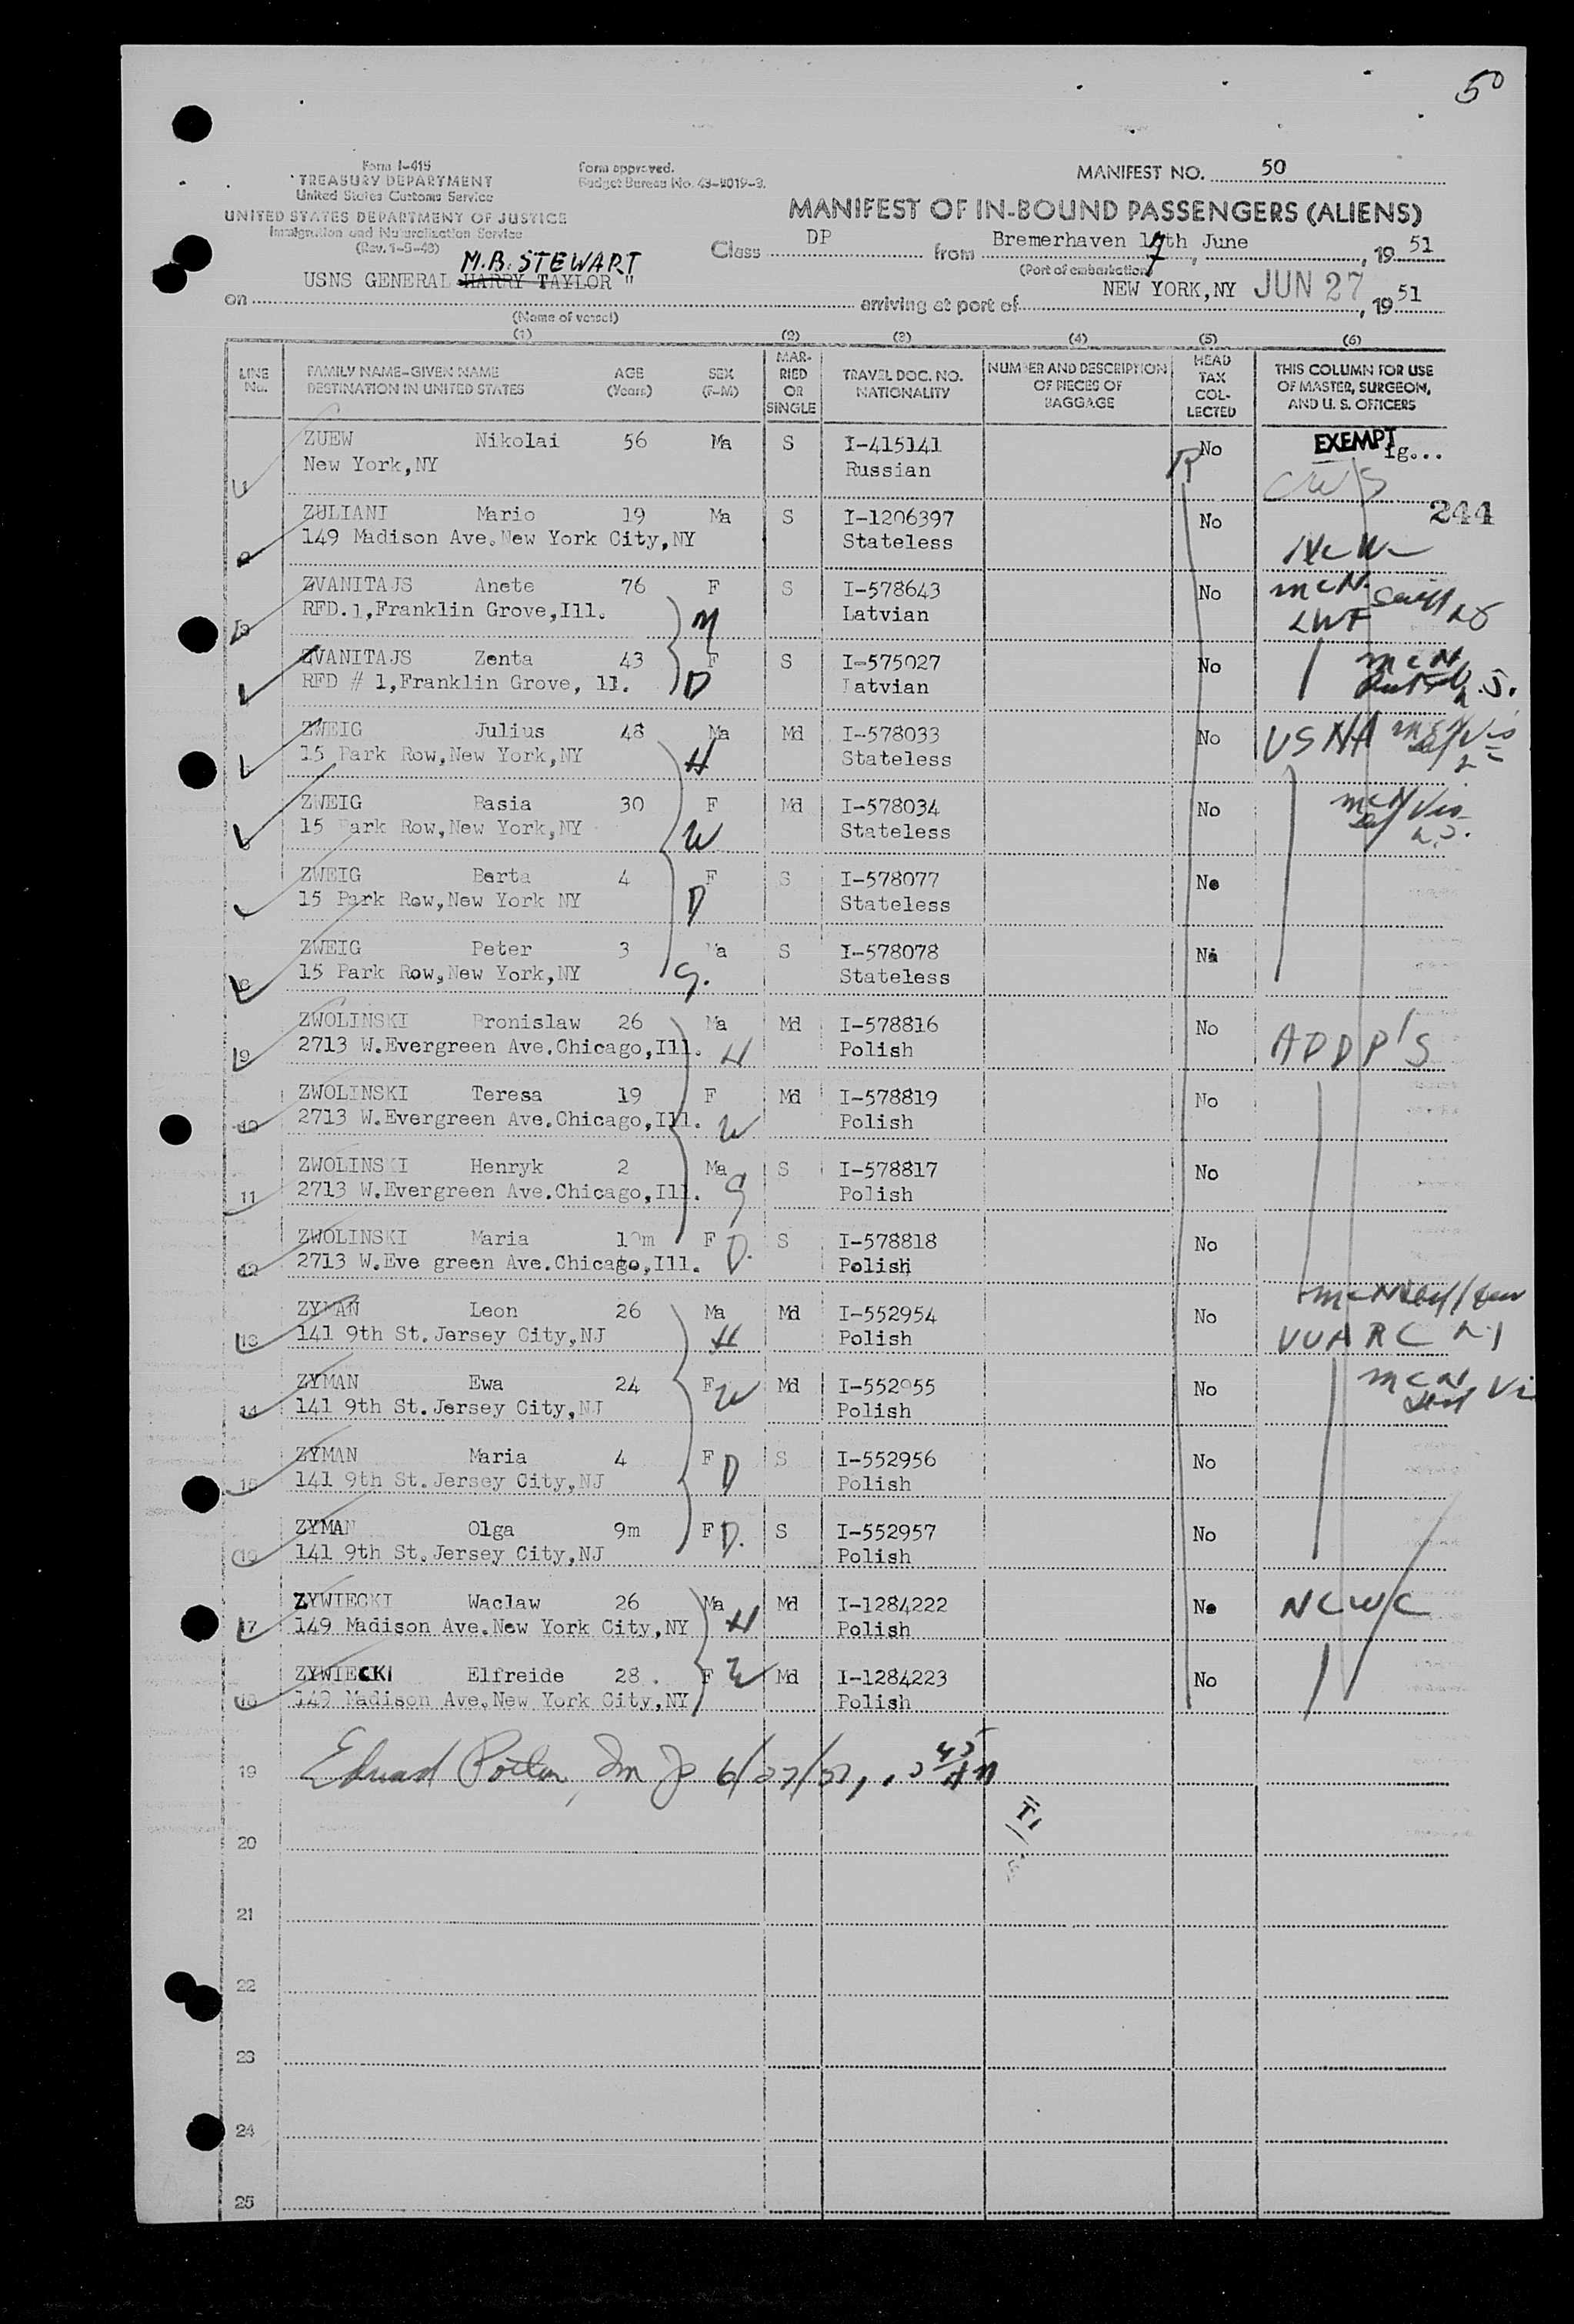 50
Form I-415
TREASURY DEPARTMENT
United States Customs Service
UNITED STATES DEPARTMENT OF JUSTICE
Immigration and Naturalization Service
(Rev. 1-5-48)
Form approved.
Budget Bureau No. 43-R019-3.
MANIFEST NO. 50
MANIFEST OF IN-BOUND PASSENGERS (ALIENS)
Class DP from Bremerhaven 17th June, 19 51
(Port of embarkation)
M.B. STEWART
on USNS GENERAL HARRY TAYLOR " arriving at port of NEW YORK,NY JUN 27, 19 51
(Name of vessel)
(1) (2) (3) (4) (5) (6)
LINE No. FAMILY NAME-GIVEN NAME DESTINATION IN UNITED STATES AGE (Years) SEX (F-M) MARRIED OR SINGLE TRAVEL DOC. NO. NATIONALITY NUMBER AND DESCRIPTION OF PIECES OF BAGGAGE HEAD TAX COLLECTED THIS COLUMN FOR USE OF MASTER, SURGEON, AND U. S. OFFICERS
ZUEW Nikolai 56 Ma S I-415141 No EXEMPT
New York,NY Russian R CWS
244
ZULIANI Mario 19 Ma S I-1206397 No
149 Madison Ave.New York City,NY Stateless
ZVANITAJS Anete 76 F S I-578643 No McN
RFD.1,Franklin Grove,Ill. M Latvian LWF
ZVANITAJS Zenta 43 F S I-575027 No McN
RFD # 1,Franklin Grove, 11. D Latvian
ZWEIG Julius 48 Ma Md I-578033 No USNA
15 Park Row,New York,NY H Stateless
ZWEIG Basia 30 F Md I-578034 No McN
15 Park Row,New York,NY W Stateless
ZWEIG Berta 4 F S I-578077 No
15 Park Row,New York NY D Stateless
ZWEIG Peter 3 Ma S I-578078 No
15 Park Row,New York,NY S. Stateless
9 ZWOLINSKI Bronislaw 26 Ma Md I-578816 No ADDP'S
2713 W.Evergreen Ave.Chicago,Ill. H Polish
10 ZWOLINSKI Teresa 19 F Md I-578819 No
2713 W.Evergreen Ave.Chicago,Ill. W Polish
11 ZWOLINSKI Henryk 2 Ma S I-578817 No
2713 W.Evergreen Ave.Chicago,Ill. S Polish
12 ZWOLINSKI Maria F S I-578818 No
2713 W.Eve green Ave.Chicago,Ill. D. Polish
13 ZYMAN Leon 26 Ma Md I-552954 No
141 9th St.Jersey City,NJ H Polish VUARC
14 ZYMAN Ewa 24 F Md I-552955 No
141 9th St.Jersey City,NJ W Polish
15 ZYMAN Maria 4 F S I-552956 No
141 9th St.Jersey City,NJ D Polish
16 ZYMAN Olga 9m F S I-552957 No
141 9th St.Jersey City,NJ D. Polish
17 ZYWIECKI Waclaw 26 Ma Md I-1284222 No NCWC
149 Madison Ave.New York City,NY H Polish
18 ZYWIECKI Elfreide 28 F Md I-1284223 No
149 Madison Ave.New York City,NY W Polish
19 6/27/51
20
21
22
23
24
25